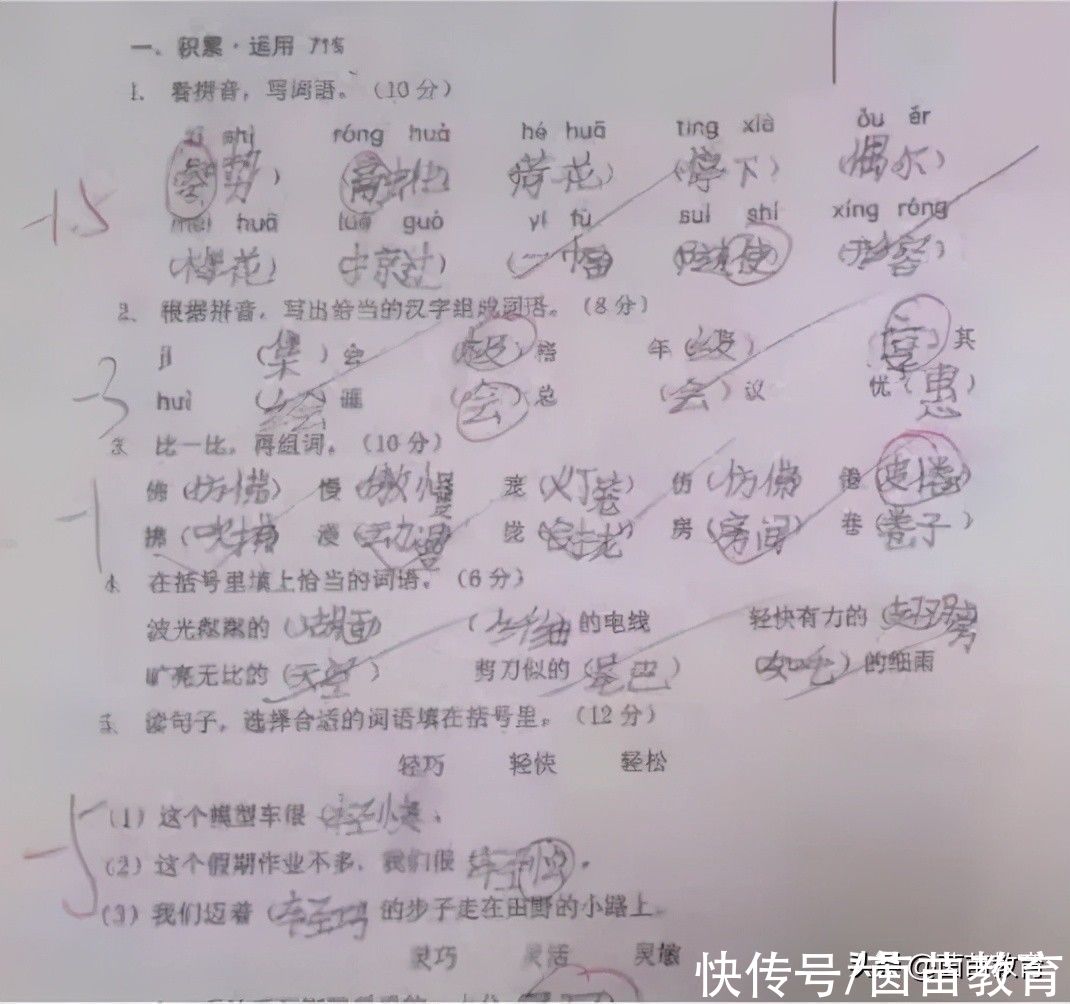 一、积累·运用
1. 看拼音，写词语。（10分）
zī shì róng huà hé huā tíng xià ǒu ěr
（势） （荷花） （停下） （偶尔）
méi huā luè guò yì fú suí shí xíng róng
（梅花） （掠过） （一幅） （随使） （形容）
-1.5
2. 根据拼音，写出恰当的汉字组成词语。（8分）
jí （集）会 （极） 年（级） 其
huì （绘）画 （会）总 （会）议 优（惠）
-3
3. 比一比，再组词。（10分）
佛（仿佛） 慢（傲慢） 笼（灯笼） 仿（仿佛） 倦（疲倦）
拂（吹拂） 漫 房（房间） 卷（卷子）
-1
4. 在括号里填上恰当的词语。（6分）
波光粼粼的（湖面） 的电线 轻快有力的（翅膀）
旷亮无比的（天空） 剪刀似的（尾巴） （如毛）的细雨
5. 读句子，选择合适的词语填在括号里。（12分）
轻巧 轻快 轻松
（1）这个模型车很（轻快）。
-5
（2）这个假期作业不多，我们很（轻松）。
（3）我们迈着（轻巧）的步子走在田野的小路上。
灵巧 灵活 灵敏
头条 @茵苗教育
快传号/茵苗教育